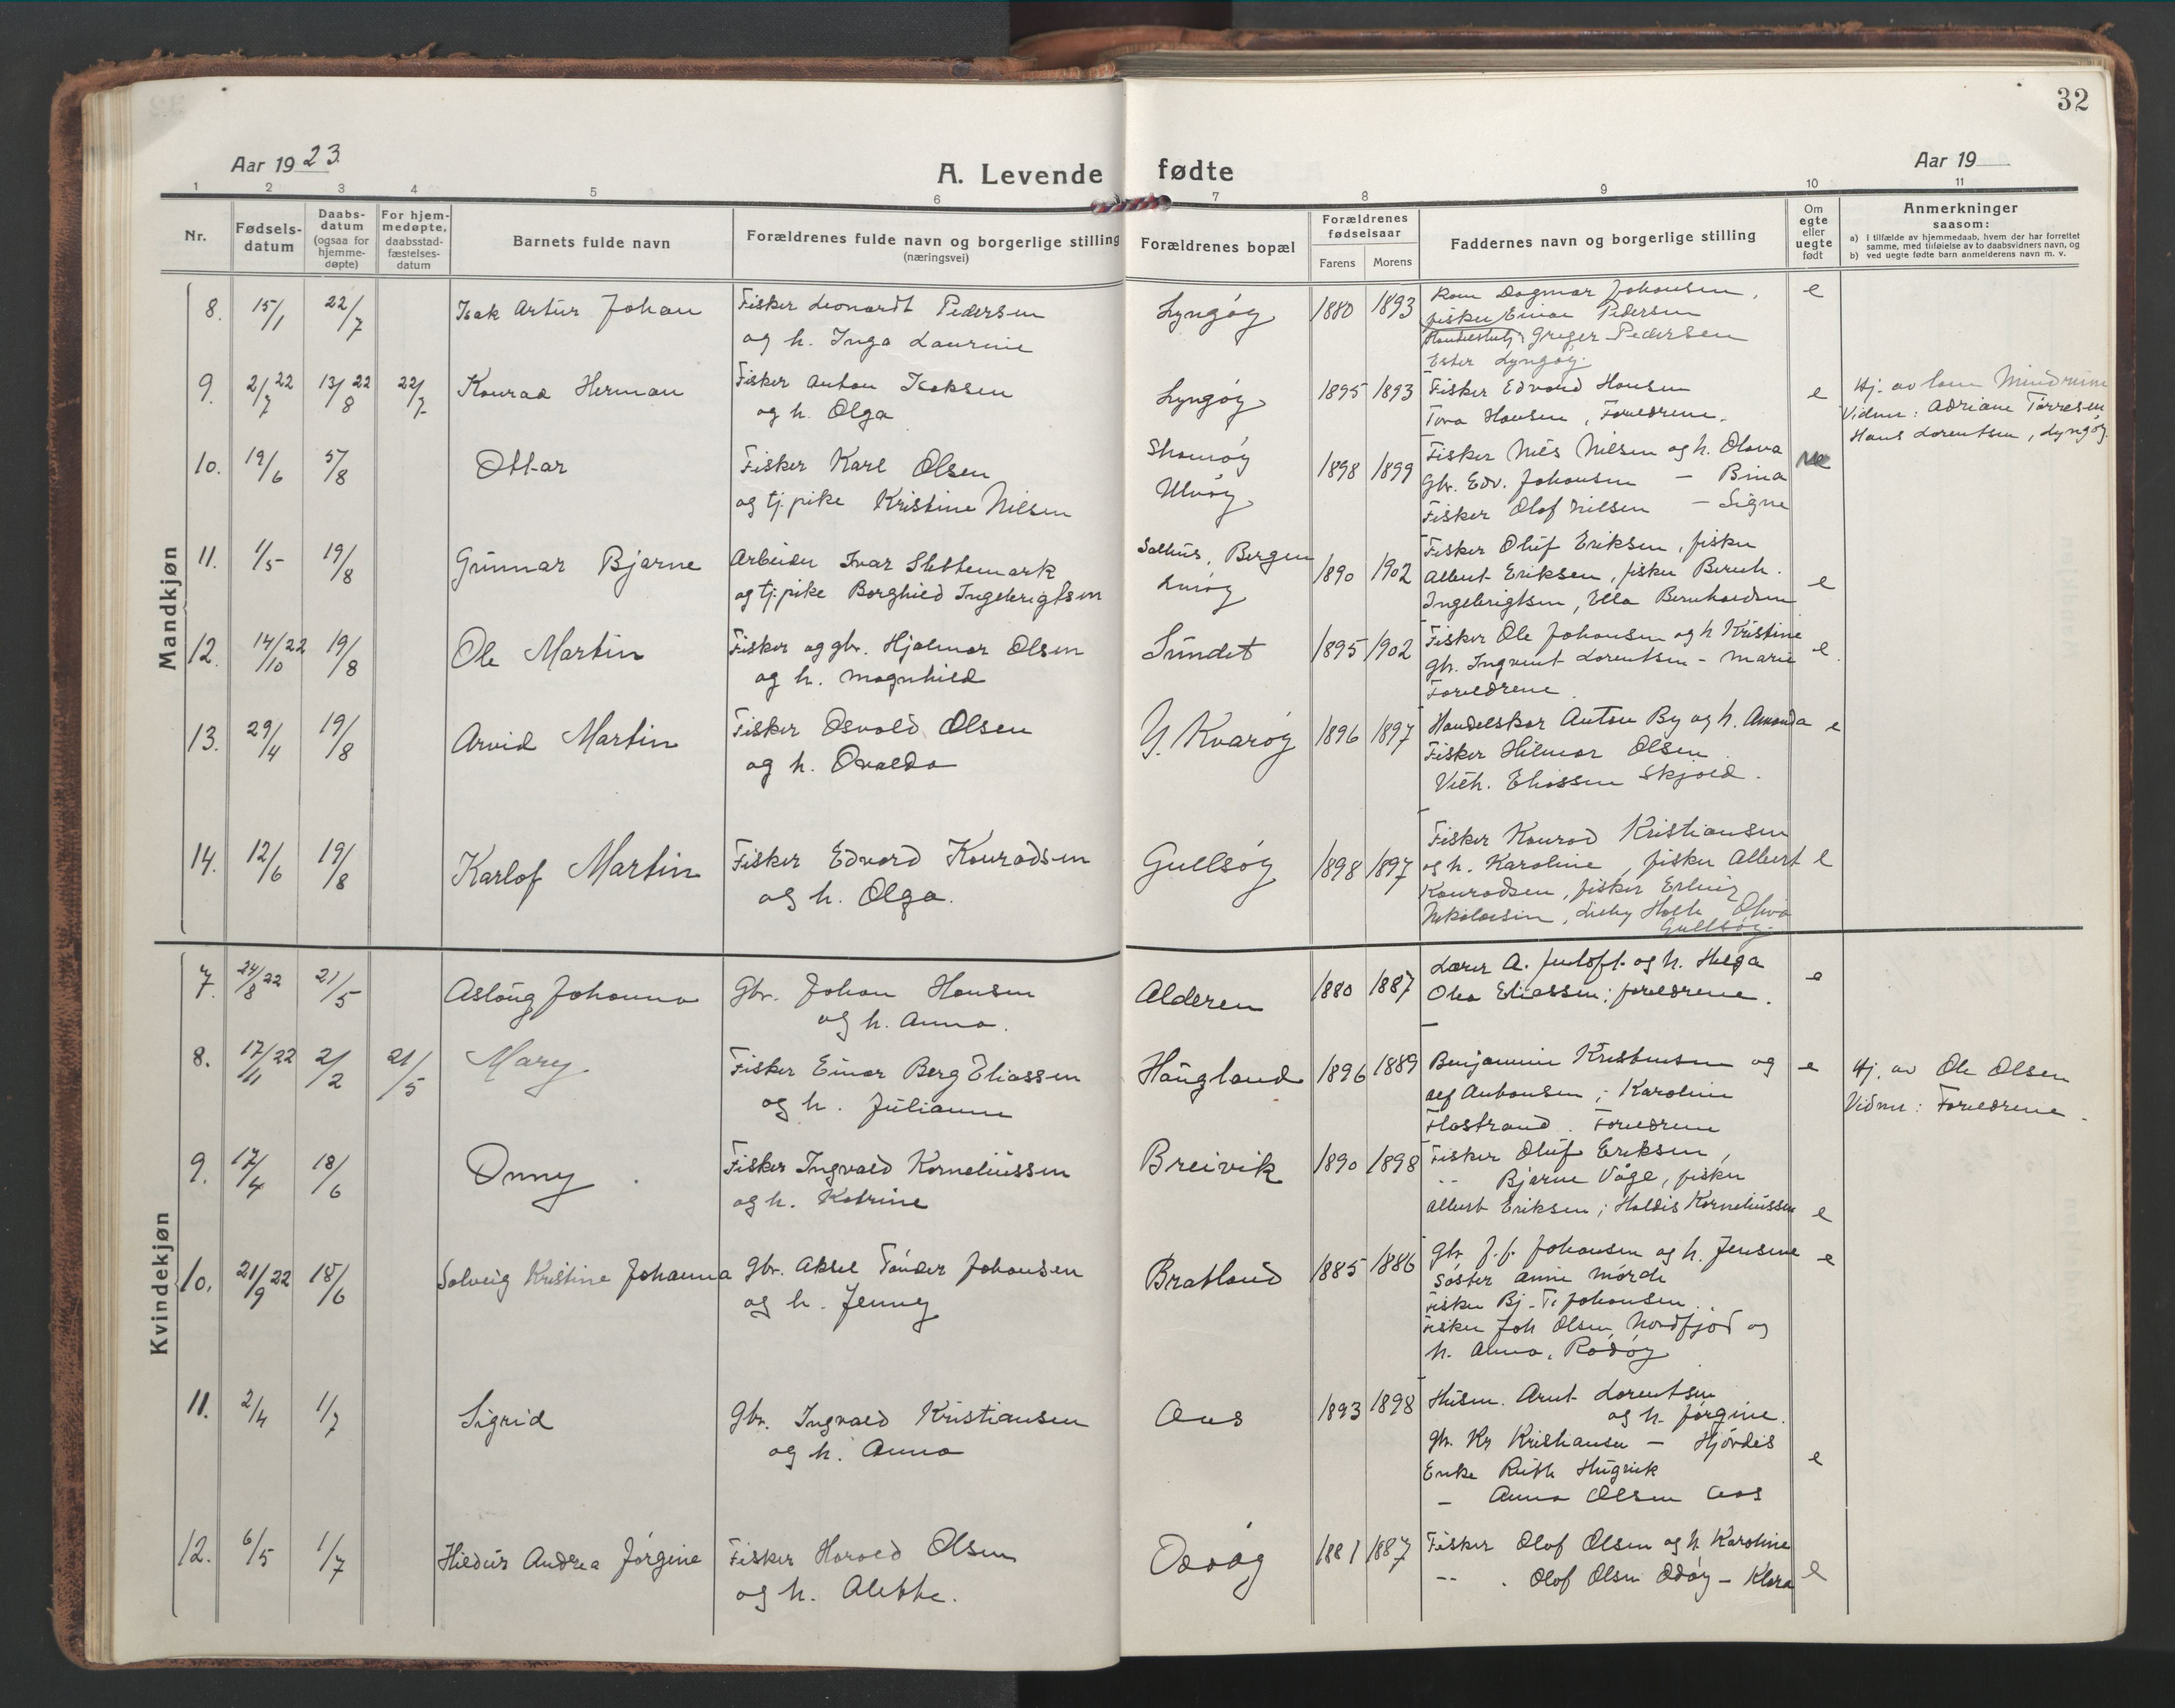 32
Aar 1923.
A. Levende fødte
Aar 19
1 2 3 4 5 6 7 8 9 10 11
Nr.
Fødsels-datum
Daabs-datum (ogsaa for hjemme-døpte)
For hjem-medøpte, daabsstad-fæstelses-datum
Barnets fulde navn
Forældrenes fulde navn og borgerlige stilling (næringsvei)
Forældrenes bopæl
Forældrenes fødselsaar
Farens Morens
Faddernes navn og borgerlige stilling
Om egte eller uegte født
Anmerkninger saasom:
a) I tilfælde av hjemmedaab, hvem der har forrettet samme, med tilføielse av to daabsvidners navn, og
b) ved uegte fødte barn anmelderens navn m. v.
Mandkjøn
8. 15/1 22/7 Isak Artur Johan
Fisker Leonardt Pedersen
og h. Inga Laurine
Lyngöy 1880 1893
Dagmar Johansen,
fisker Einar Pedersen
Greger Pedersen
Ester Lyngöy.
e
9. 2/7 22 13/8 22 22/7 Konrad Herman
Fisker Anton Isaksen
og h. Olga
Lyngöy 1895 1893
Fisker Edvard Hansen
Tora Hansen, Foreldrene.
e
Hj. av
Vidner: Adriane Torresen
Hans Lorentsen, Lyngöy.
10. 19/6 5/8 Ottar
Fisker Karl Olsen
og tj.pike Kristine Nilsen
Ulvöy
1898 1899
Fisker Nils Nilsen og h. Olava
Gbr. Edv. Johansen — Bina
Fisker Olaf Nilsen — Signe
11. 1/5 19/8 Gunnar Bjarne
Arbeider Ivar Slettemark
og tj.pike Borghild Ingebrigtsen
Salhus, Bergen
1890 1902
Fisker Oluf Eriksen, fisker
Albert Eriksen, fisker Bernh.
Ingebrigtsen, Ella Bernhardsen
e
12. 14/10 22 19/8 Ole Martin
Fisker og gbr. Hjalmar Olsen
og h. Magnhild
Sundet 1895 1902
Fisker Ole Johansen og h Kristine
Gbr. Ingvart Lorentsen – Marie
Foreldrene.
e.
13. 29/4 19/8 Arvid Martin
Fisker Osvald Olsen
og h. Ovalda
Y. Kvaröy 1896 1897
Handelskar Anton By og h. Amanda
Fisker Hilmar Olsen
Vilh. Eliassen Skjold.
e
14. 12/6 19/8 Karlof Martin
Fisker Edvard Konradsen
og h. Olga.
Gullsöy 1898 1897
Fisker Konrad Kristiansen
og h. Karoline, fisker Albert
Konradsen, fisker Erling
Nikolaisen,
Gullsöy.
e
Kvindekjøn
7. 24/8 22 21/5 Aslaug Johanna
Gbr. Johan Hansen
og h. Anna.
Alderen 1880 1887
Lærer A. Juloft og h. Helga
Olea Eliassen; foreldrene.
e
8. 17/11 22 2/2 21/5 Mary.
Fisker Einar Berg Eliassen
og h. Julianne
Haugland 1896 1889
Benjamin Kristensen og
Alf Antonsen; Karoline
Flostrand. Foreldrene
e
Hj. av Ole Olsen
Vidner: Foreldrene.
9. 17/4 18/6 Onny.
Fisker Ingvald Korneliussen
og h. Katrine
Breivik 1890 1898
Fisker Oluf Eriksen,
-- Bjarne Våge, fisker
Albert Eriksen; Haldis Korneliussen
e
10. 21/9 22 18/6 Solveig Kristine Johanna
Gbr. Aksel Tönder Johansen
og h. Jenny
Bratland 1885 1886
Gbr. J. J. Johansen og h. Jensine
Söster Anni Mörch
Fisker Bj. T. Johansen.
Fisker Joh Olsen, Nordfjord og
h. Anna, Rödöy
e
11. 2/4 1/7 Sigrid
Gbr. Ingvald Kristiansen
og h. Anna
Aas 1893 1898
Husm. Arnt Lorentsen
og h. Jörgine.
Gbr. Kr Kristiansen — Hjördis
Enke Ruth
– Anna Olsen Aas
e
12. 6/5 1/7 Hildur Andrea Jörgine
Fisker Harald Olsen
og h. Alette.
1881 1887
Fisker Olaf Olsen og h. Karoline
-- . Olaf Olsen Odöy – Klara
e